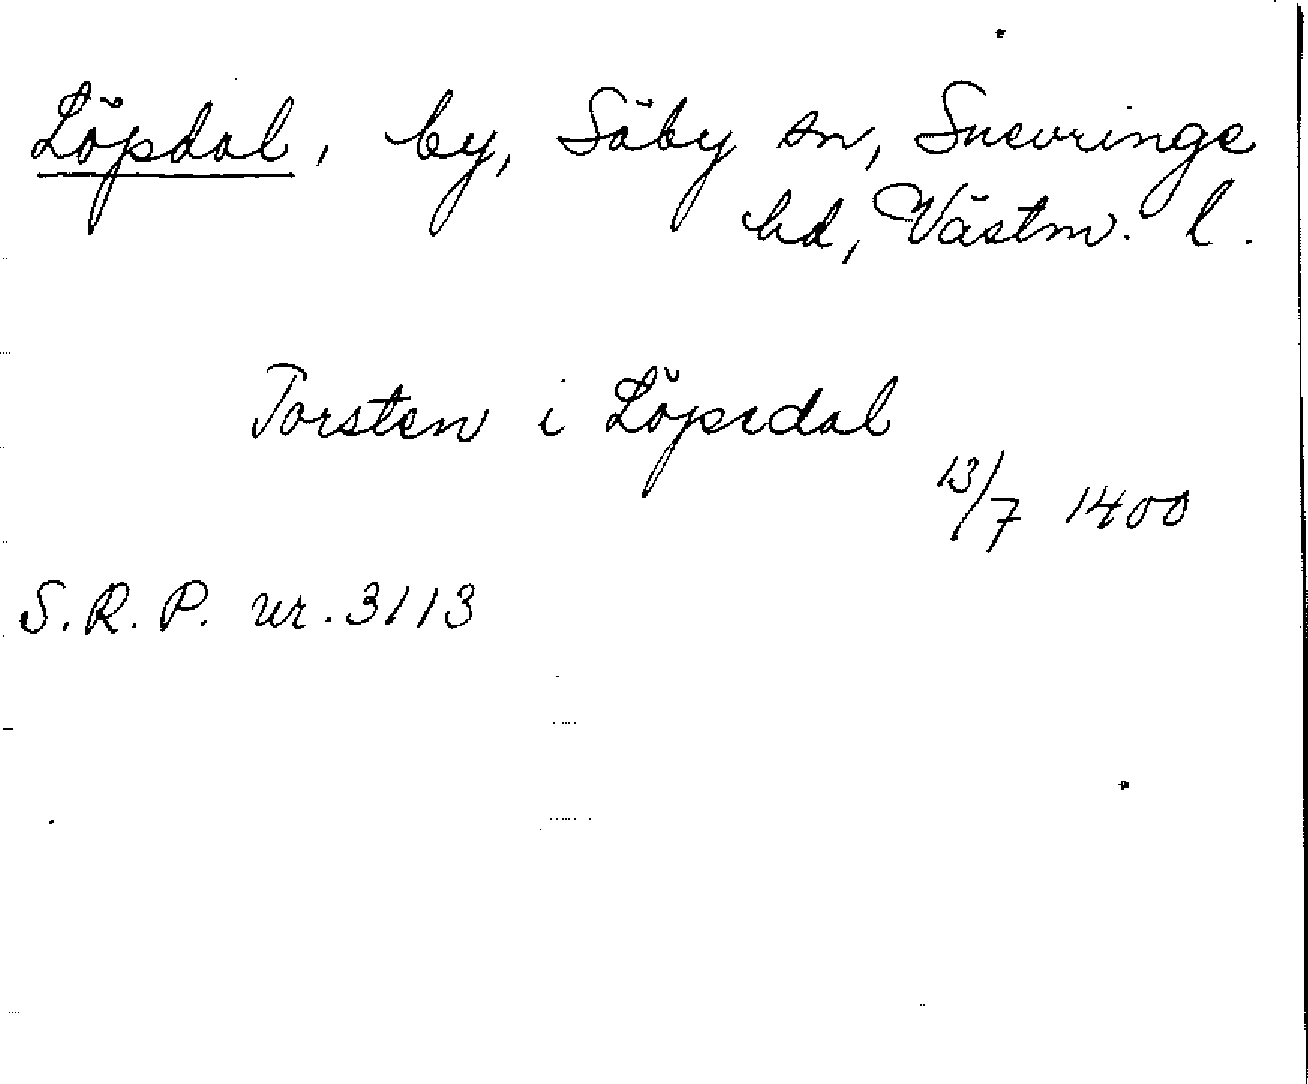 Löpdal, by, Säby sn, Snevringe
hd, Västm. l.
Torsten i Löpedal
13/7 1400
S.R.P. nr. 3113